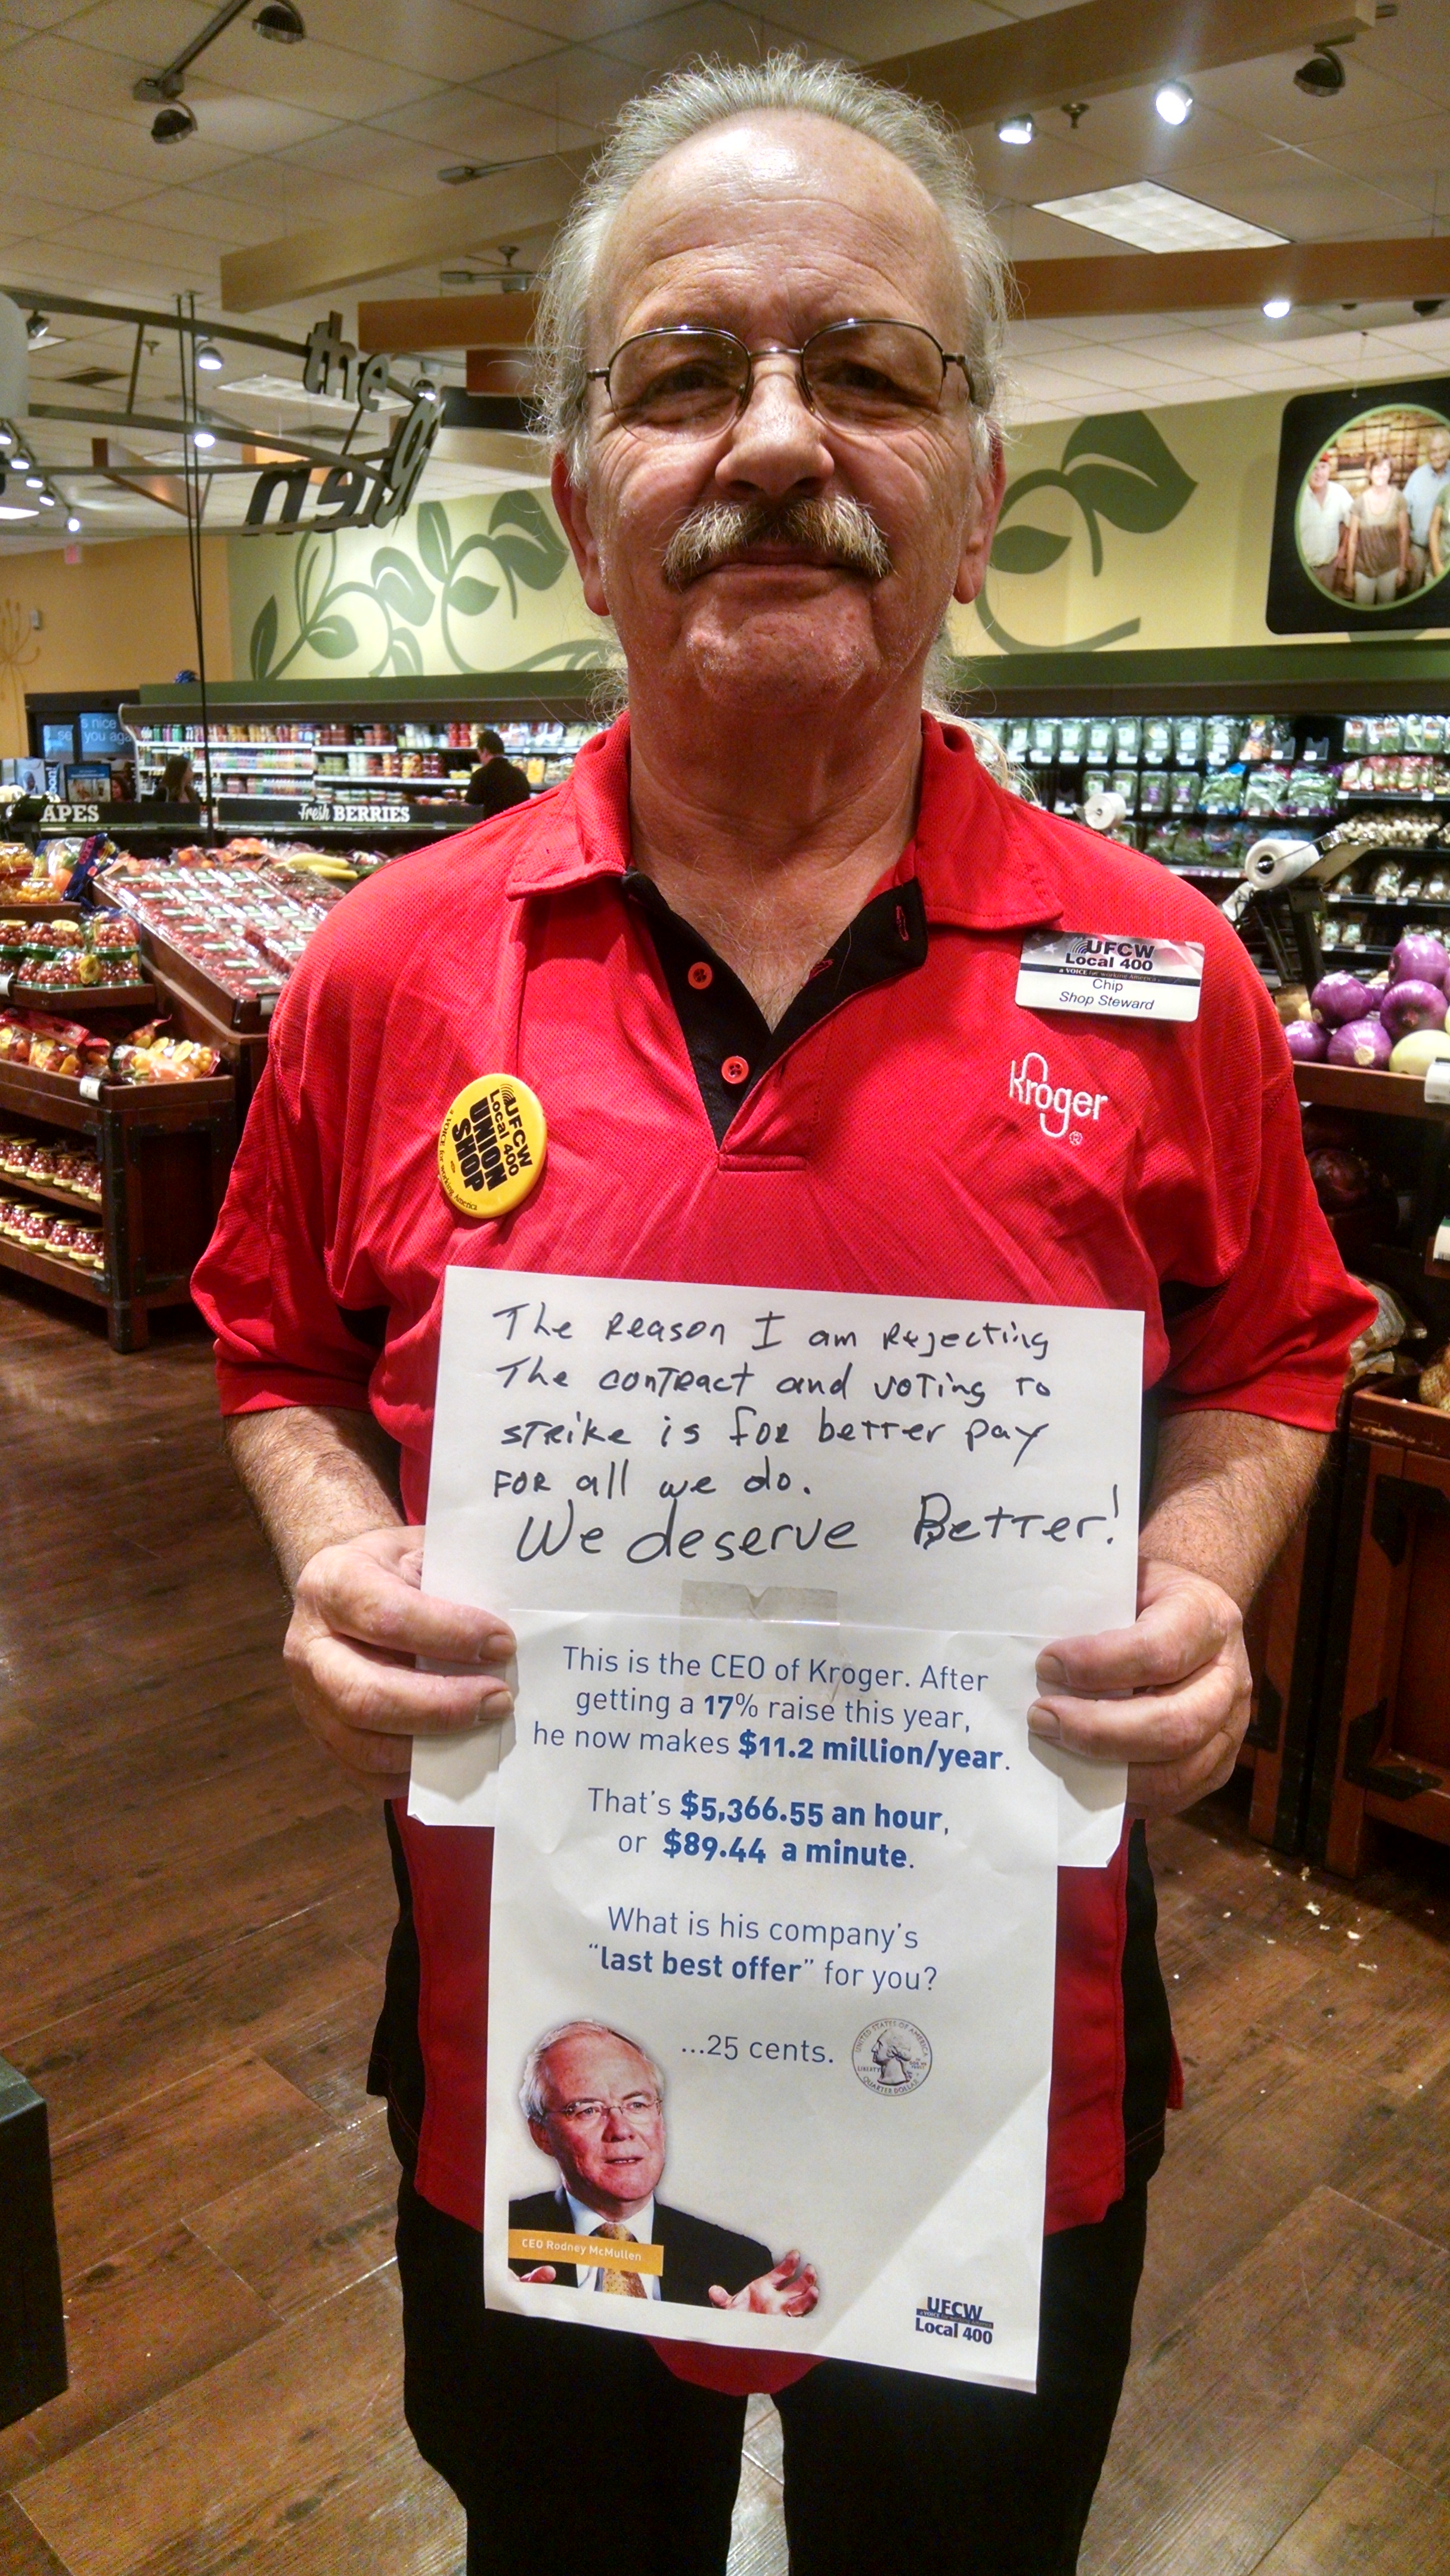 the
garden
s nice
see you aga
APES
Fresh BERRIES
UFCW
Local 400
a VOICE for working America
Chip
Shop Steward
kroger
®
UFCW
Local 400
UNION
SHOP
a VOICE for working America
The Reason I am Rejecting
The contract and voting to
strike is for better pay
for all we do.
We deserve Better!
This is the CEO of Kroger. After
getting a 17% raise this year,
he now makes $11.2 million/year.
That's $5,366.55 an hour,
or $89.44 a minute.
What is his company's
"last best offer" for you?
...25 cents.
UNITED STATES OF AMERICA
LIBERTY
QUARTER DOLLAR
CEO Rodney McMullen
UFCW
Local 400